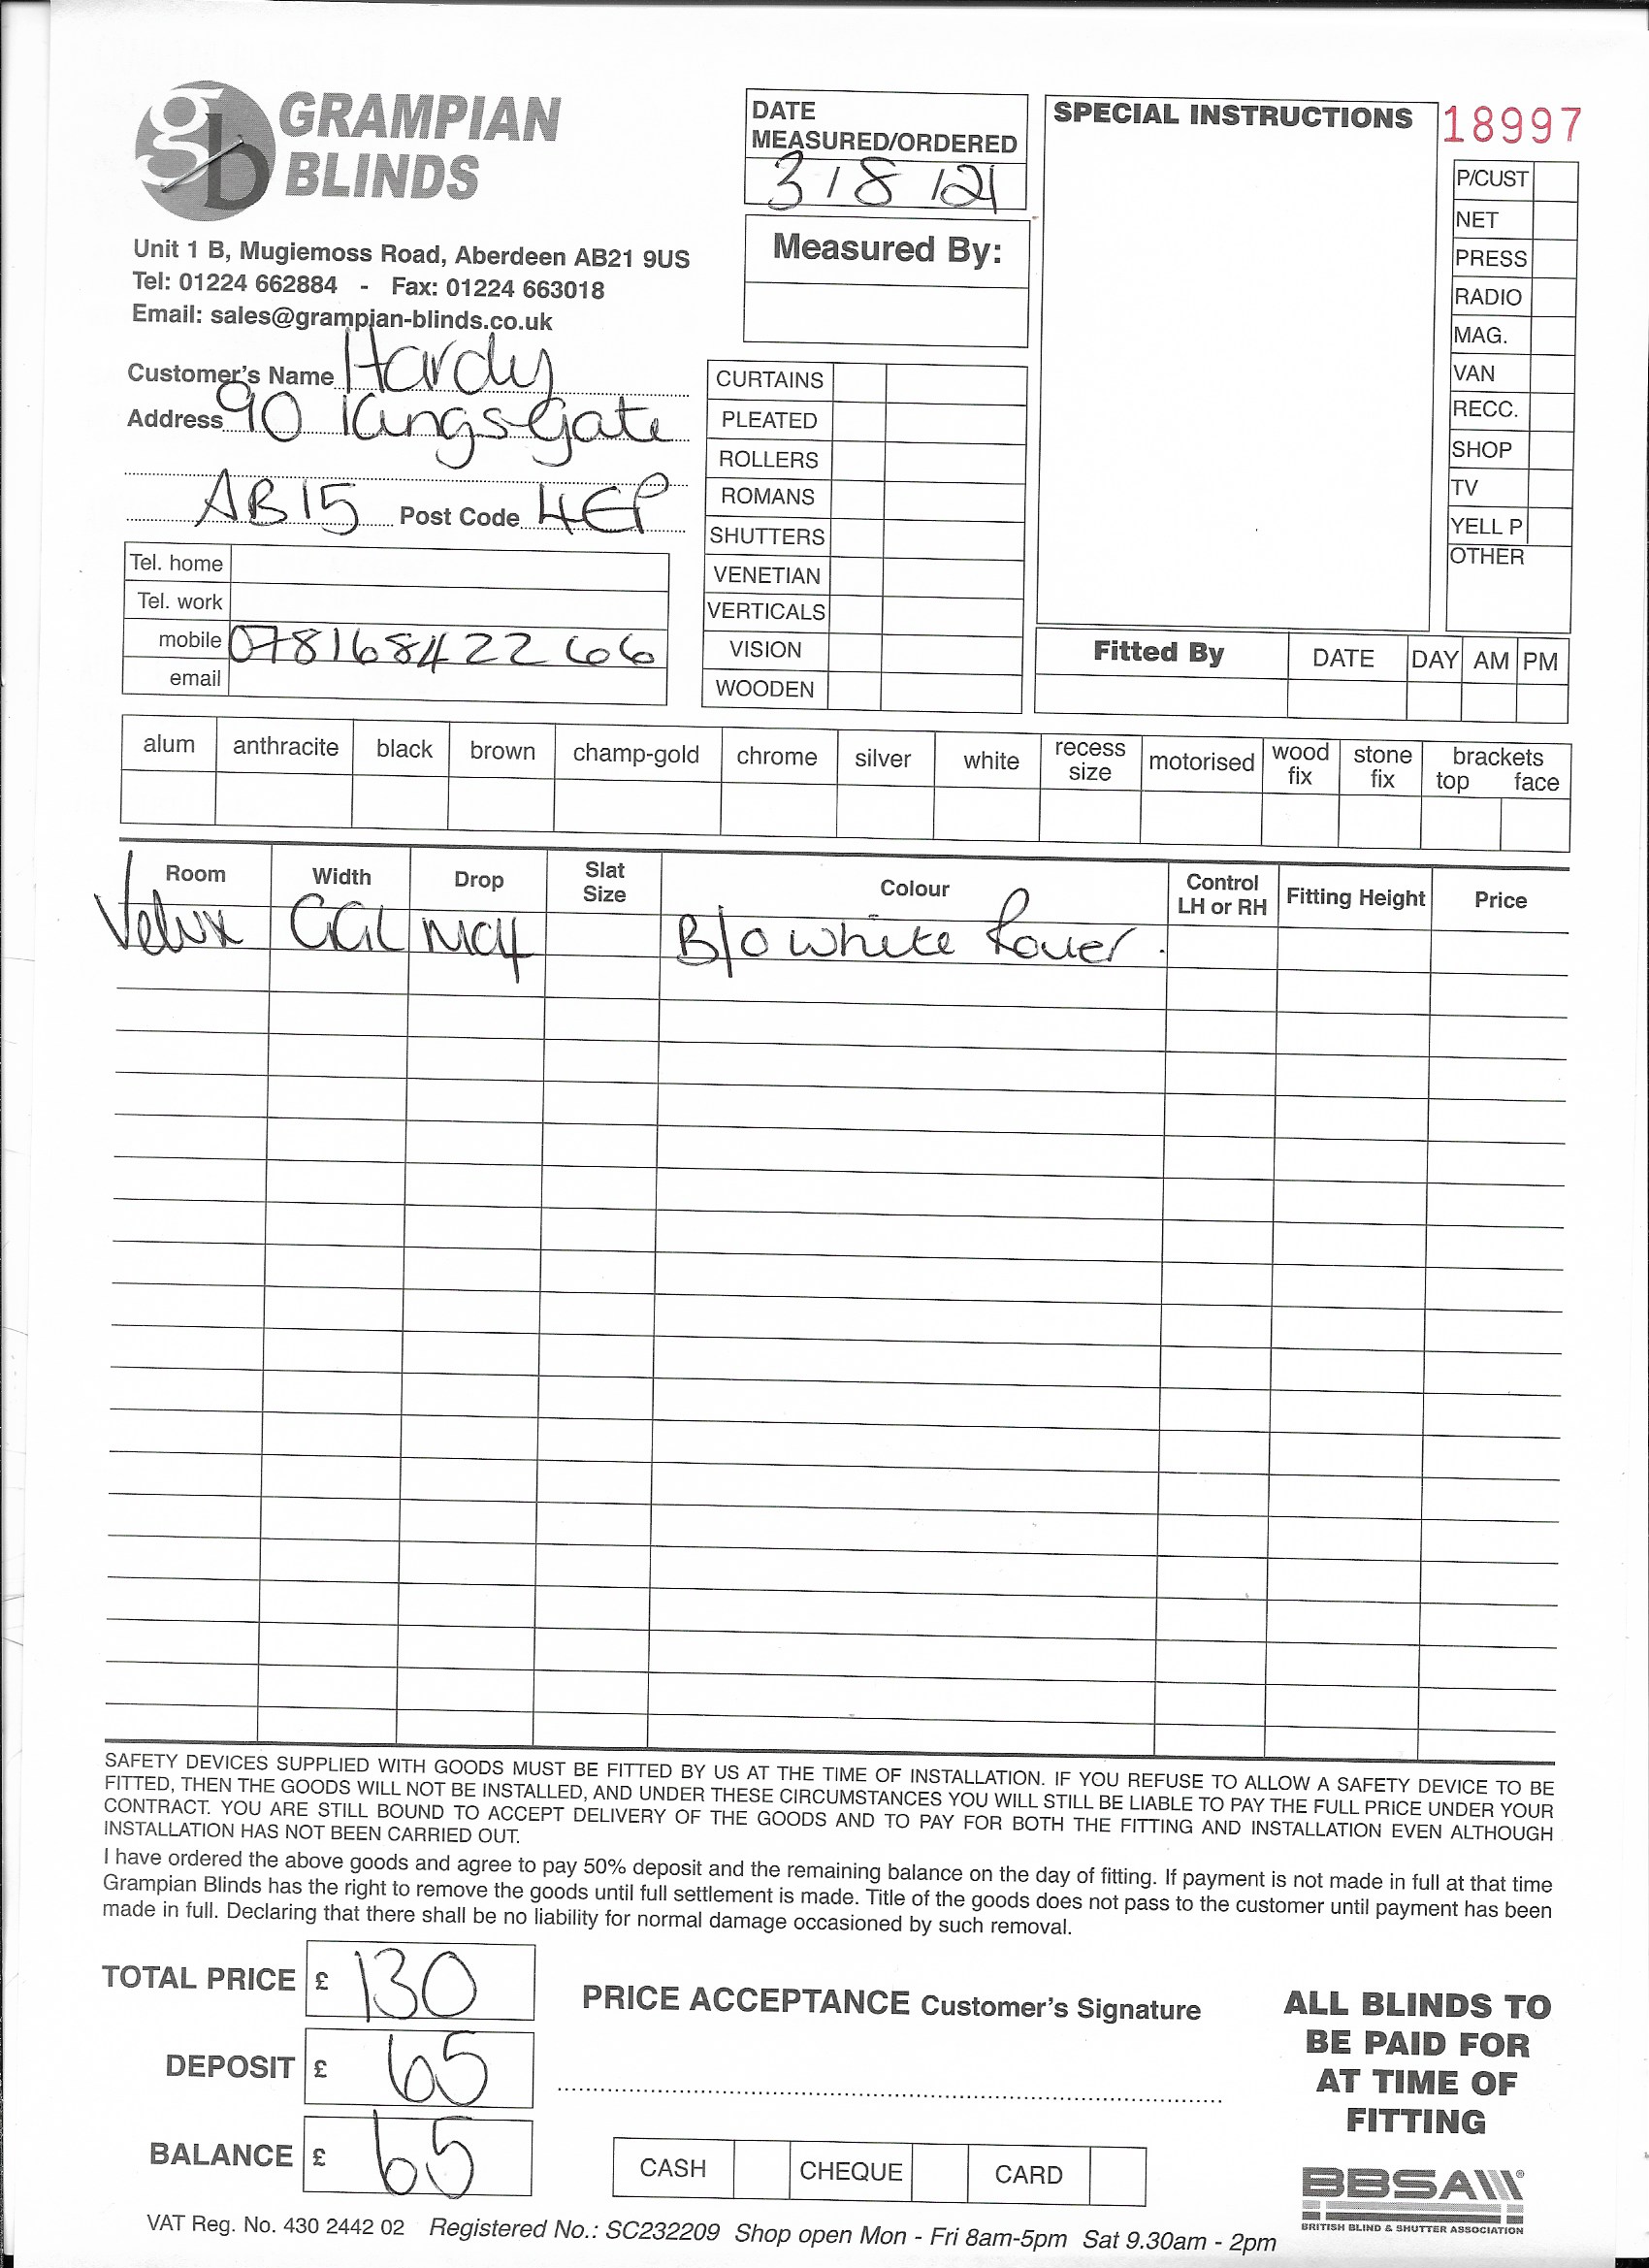 gb GRAMPIAN
BLINDS
Unit 1 B, Mugiemoss Road, Aberdeen AB21 9US
Tel: 01224 662884 - Fax: 01224 663018
Email: sales@grampian-blinds.co.uk
Customer's Name Hardy
Address 90 Kingsgate
AB15 Post Code 4EP
Tel. home
Tel. work
mobile 07816842266
email
DATE
MEASURED/ORDERED
3/8/21
Measured By:
CURTAINS
PLEATED
ROLLERS
ROMANS
SHUTTERS
VENETIAN
VERTICALS
VISION
WOODEN
SPECIAL INSTRUCTIONS
18997
P/CUST
NET
PRESS
RADIO
MAG.
VAN
RECC.
SHOP
TV
YELL P
OTHER
Fitted By DATE DAY AM PM
alum anthracite black brown champ-gold chrome silver white recess size motorised wood fix stone fix brackets top face
Room Width Drop Slat Size Colour Control LH or RH Fitting Height Price
Velux GGL MO4 B/O White Roller.
SAFETY DEVICES SUPPLIED WITH GOODS MUST BE FITTED BY US AT THE TIME OF INSTALLATION. IF YOU REFUSE TO ALLOW A SAFETY DEVICE TO BE
FITTED, THEN THE GOODS WILL NOT BE INSTALLED, AND UNDER THESE CIRCUMSTANCES YOU WILL STILL BE LIABLE TO PAY THE FULL PRICE UNDER YOUR
CONTRACT. YOU ARE STILL BOUND TO ACCEPT DELIVERY OF THE GOODS AND TO PAY FOR BOTH THE FITTING AND INSTALLATION EVEN ALTHOUGH
INSTALLATION HAS NOT BEEN CARRIED OUT.
I have ordered the above goods and agree to pay 50% deposit and the remaining balance on the day of fitting. If payment is not made in full at that time
Grampian Blinds has the right to remove the goods until full settlement is made. Title of the goods does not pass to the customer until payment has been
made in full. Declaring that there shall be no liability for normal damage occasioned by such removal.
TOTAL PRICE £ 130
DEPOSIT £ 65
BALANCE £ 65
PRICE ACCEPTANCE Customer's Signature
CASH CHEQUE CARD
ALL BLINDS TO
BE PAID FOR
AT TIME OF
FITTING
BBSA
BRITISH BLIND & SHUTTER ASSOCIATION
VAT Reg. No. 430 2442 02 Registered No.: SC232209 Shop open Mon - Fri 8am-5pm Sat 9.30am - 2pm